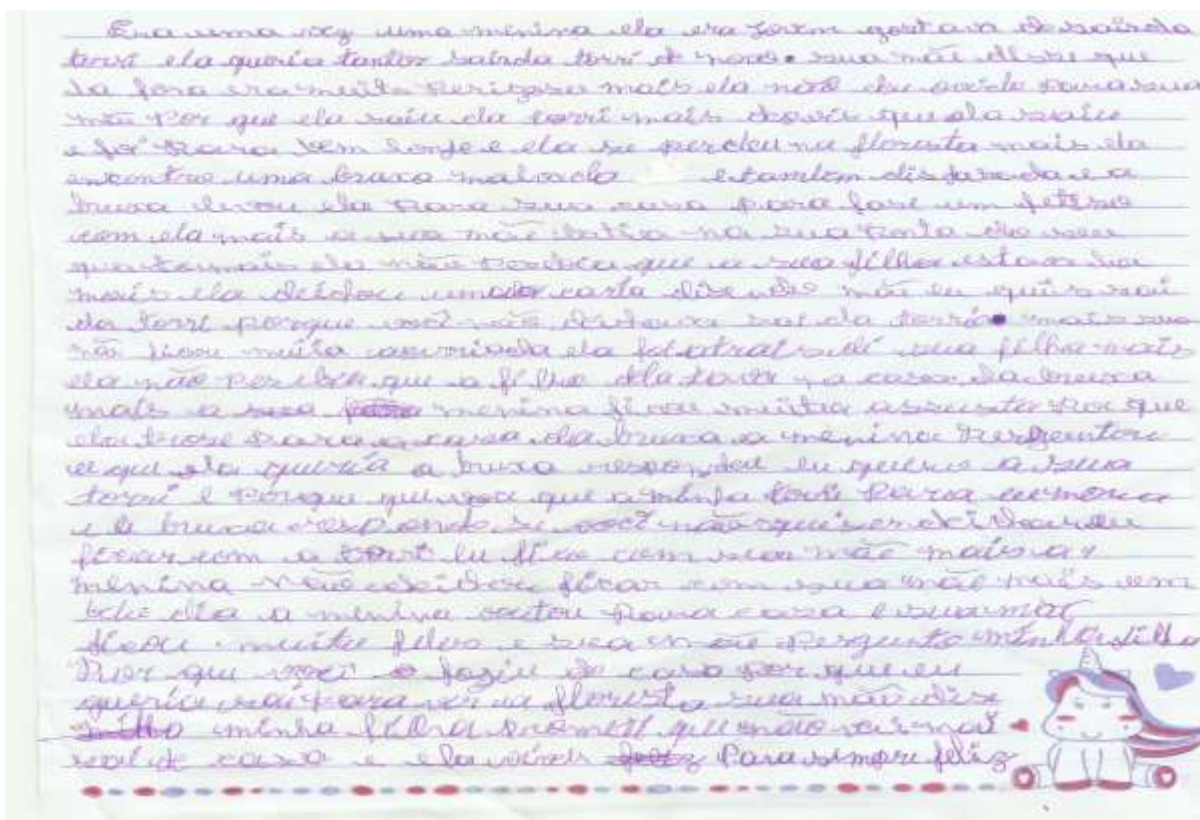 Era uma vez uma menina ela era jovem gostava de saír da
torri ela queria tantor saír da torri de novo. sua mãe disse que
la fora era muito perigosu mais ela não deu ovido para sua
mãe por que ela saiu da torri mais dovis que ela saiu
e foi para bem lonje e ela se perdeu na floresta mais ela
encontrou uma bruxa malvada e tamben disfarsada e a
bruxa levou ela para sua casa para fase um fetiso
com ela mais a sua mãe batia na sua porta do seu
quato mais ela não posibia que a sua filha estava la
mais ela deichou uma carta dise do mãe eu quis saí
da torri porque você não deichava saí da torri mais sua
mãe ficou muita ela foi atrais di sua filha mais
ela não persibia que a filha dela tava na casa da bruxa
mais a menina ficou muita assustada por que
ela para a casa da bruxa a menina perguntou
o que ela queria a bruxa respondeu eu quero a sua
torri e porque que a minha torri para
e a bruxa responde se você não quis deichar eu
ficar com a torri eu fico com sua mãe mais a
menina não deichou ficar com sua mãe mais um
belo dia a menina voutou para casa e sua mãe
ficou muita felis e sua mãe pergunto minha filha
Por que você fugiu de casa por que eu
queria saí para vê a floresta sua mãe dise
minha filha prometi que não vai mai
saí de casa e ela viveis Para sempre feliz